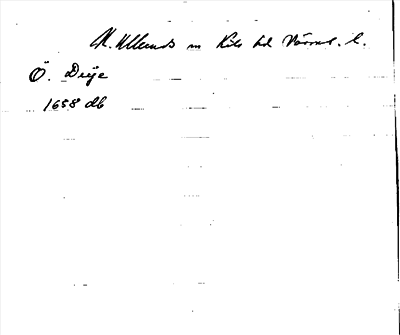 N. Ulleruds sn Kils hd Värml. l.
Ö. Deije
1658 db